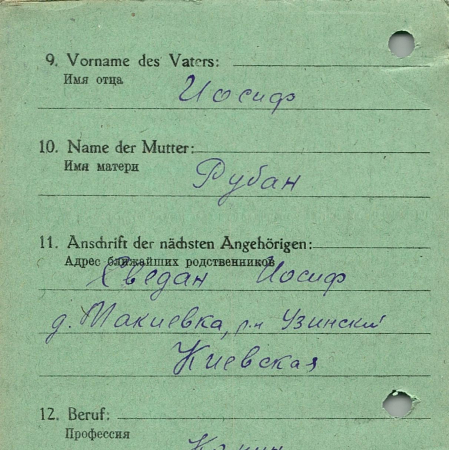 9. Vorname des Vaters:
Имя отца
Иосиф
10. Name der Mutter:
Имя матери
Рубан
11. Anschrift der nächsten Angehörigen:
Адрес ближайших родственников
Сведан Иосиф
д. Макиевка, р-н Узинский
Киевская
12. Beruf:
Профессия